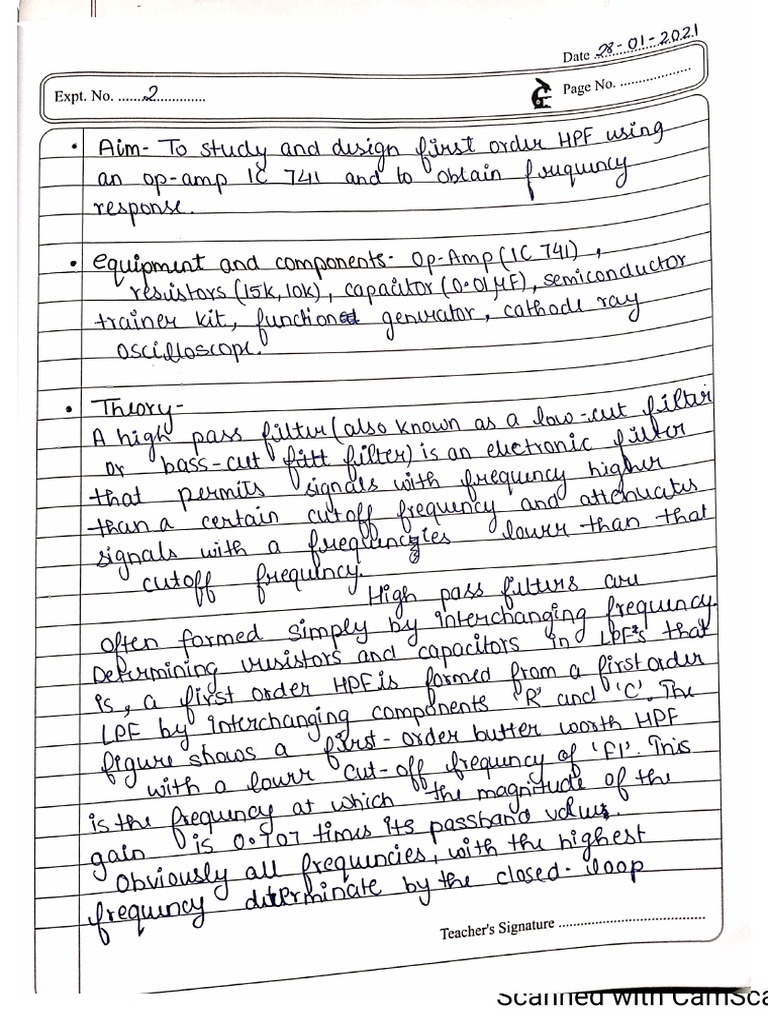 Date 28-01-2021
Expt. No. ......2..............
Page No. ....................
• Aim- To study and design first order HPF using
an op-amp IC 741 and to obtain frequency
response.
• Equipment and components- Op-Amp (IC 741),
resistors (15k, 10k), capacitor (0.01μF), semiconductor
trainer kit, function generator, cathode ray
oscilloscope.
• Theory-
A high pass filter (also known as a low-cut filter
or bass-cut filter) is an electronic filter
that permits signals with frequency higher
than a certain cutoff frequency and attenuates
signals with a frequencies lower than that
cutoff frequency.
High pass filters are
often formed simply by interchanging frequency.
Determining resistors and capacitors in LPF's that
is, a first order HPF is formed from a first order
LPF by interchanging components 'R' and 'C'. The
figure shows a first-order butter worth HPF
with a lower cut-off frequency of 'Fl'. This
is the frequency at which the magnitude of the
gain is 0.707 times its passband value.
Obviously all frequencies, with the highest
frequency determinate by the closed-loop
Teacher's Signature ................................
Scanned with CamSca